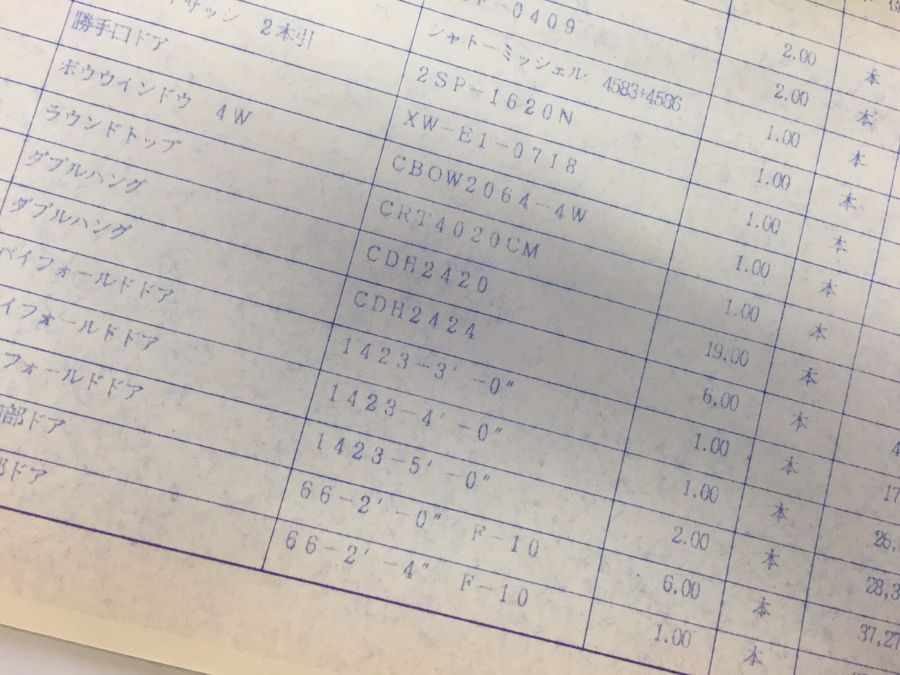 2.00 本
-0409 2.00 本
シャトーミッシェル 4583+4536 1.00 本
サッシ 2本引 2SP-1620N 1.00 本
勝手口ドア XW-E1-0718 1.00 本
ボウウインドウ 4W CBOW2064-4W 1.00 本
ラウンドトップ CRT4020CM 1.00 本
ダブルハング CDH2420 19.00 本
ダブルハング CDH2424 6.00 本
バイフォールドドア 1423-3'-0" 1.00 本 17
イフォールドドア 1423-4 -0" 1.00 本 26,
フォールドドア 1423-5'-0" 2.00 本 28,3
部ドア 66-2'-0" F-10 6.00 本 37,27
ドア 66-2'-4" F-10 1.00 本